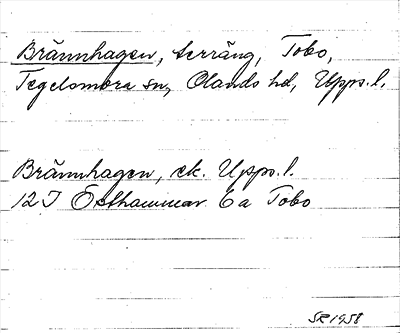 Brännhagen, terräng, Tobo,
Tegelsmora sn, Olands hd, Upps.l.
Brännhagen, ek. Upps.l.
12 I Östhammar 6a Tobo
SR 1958